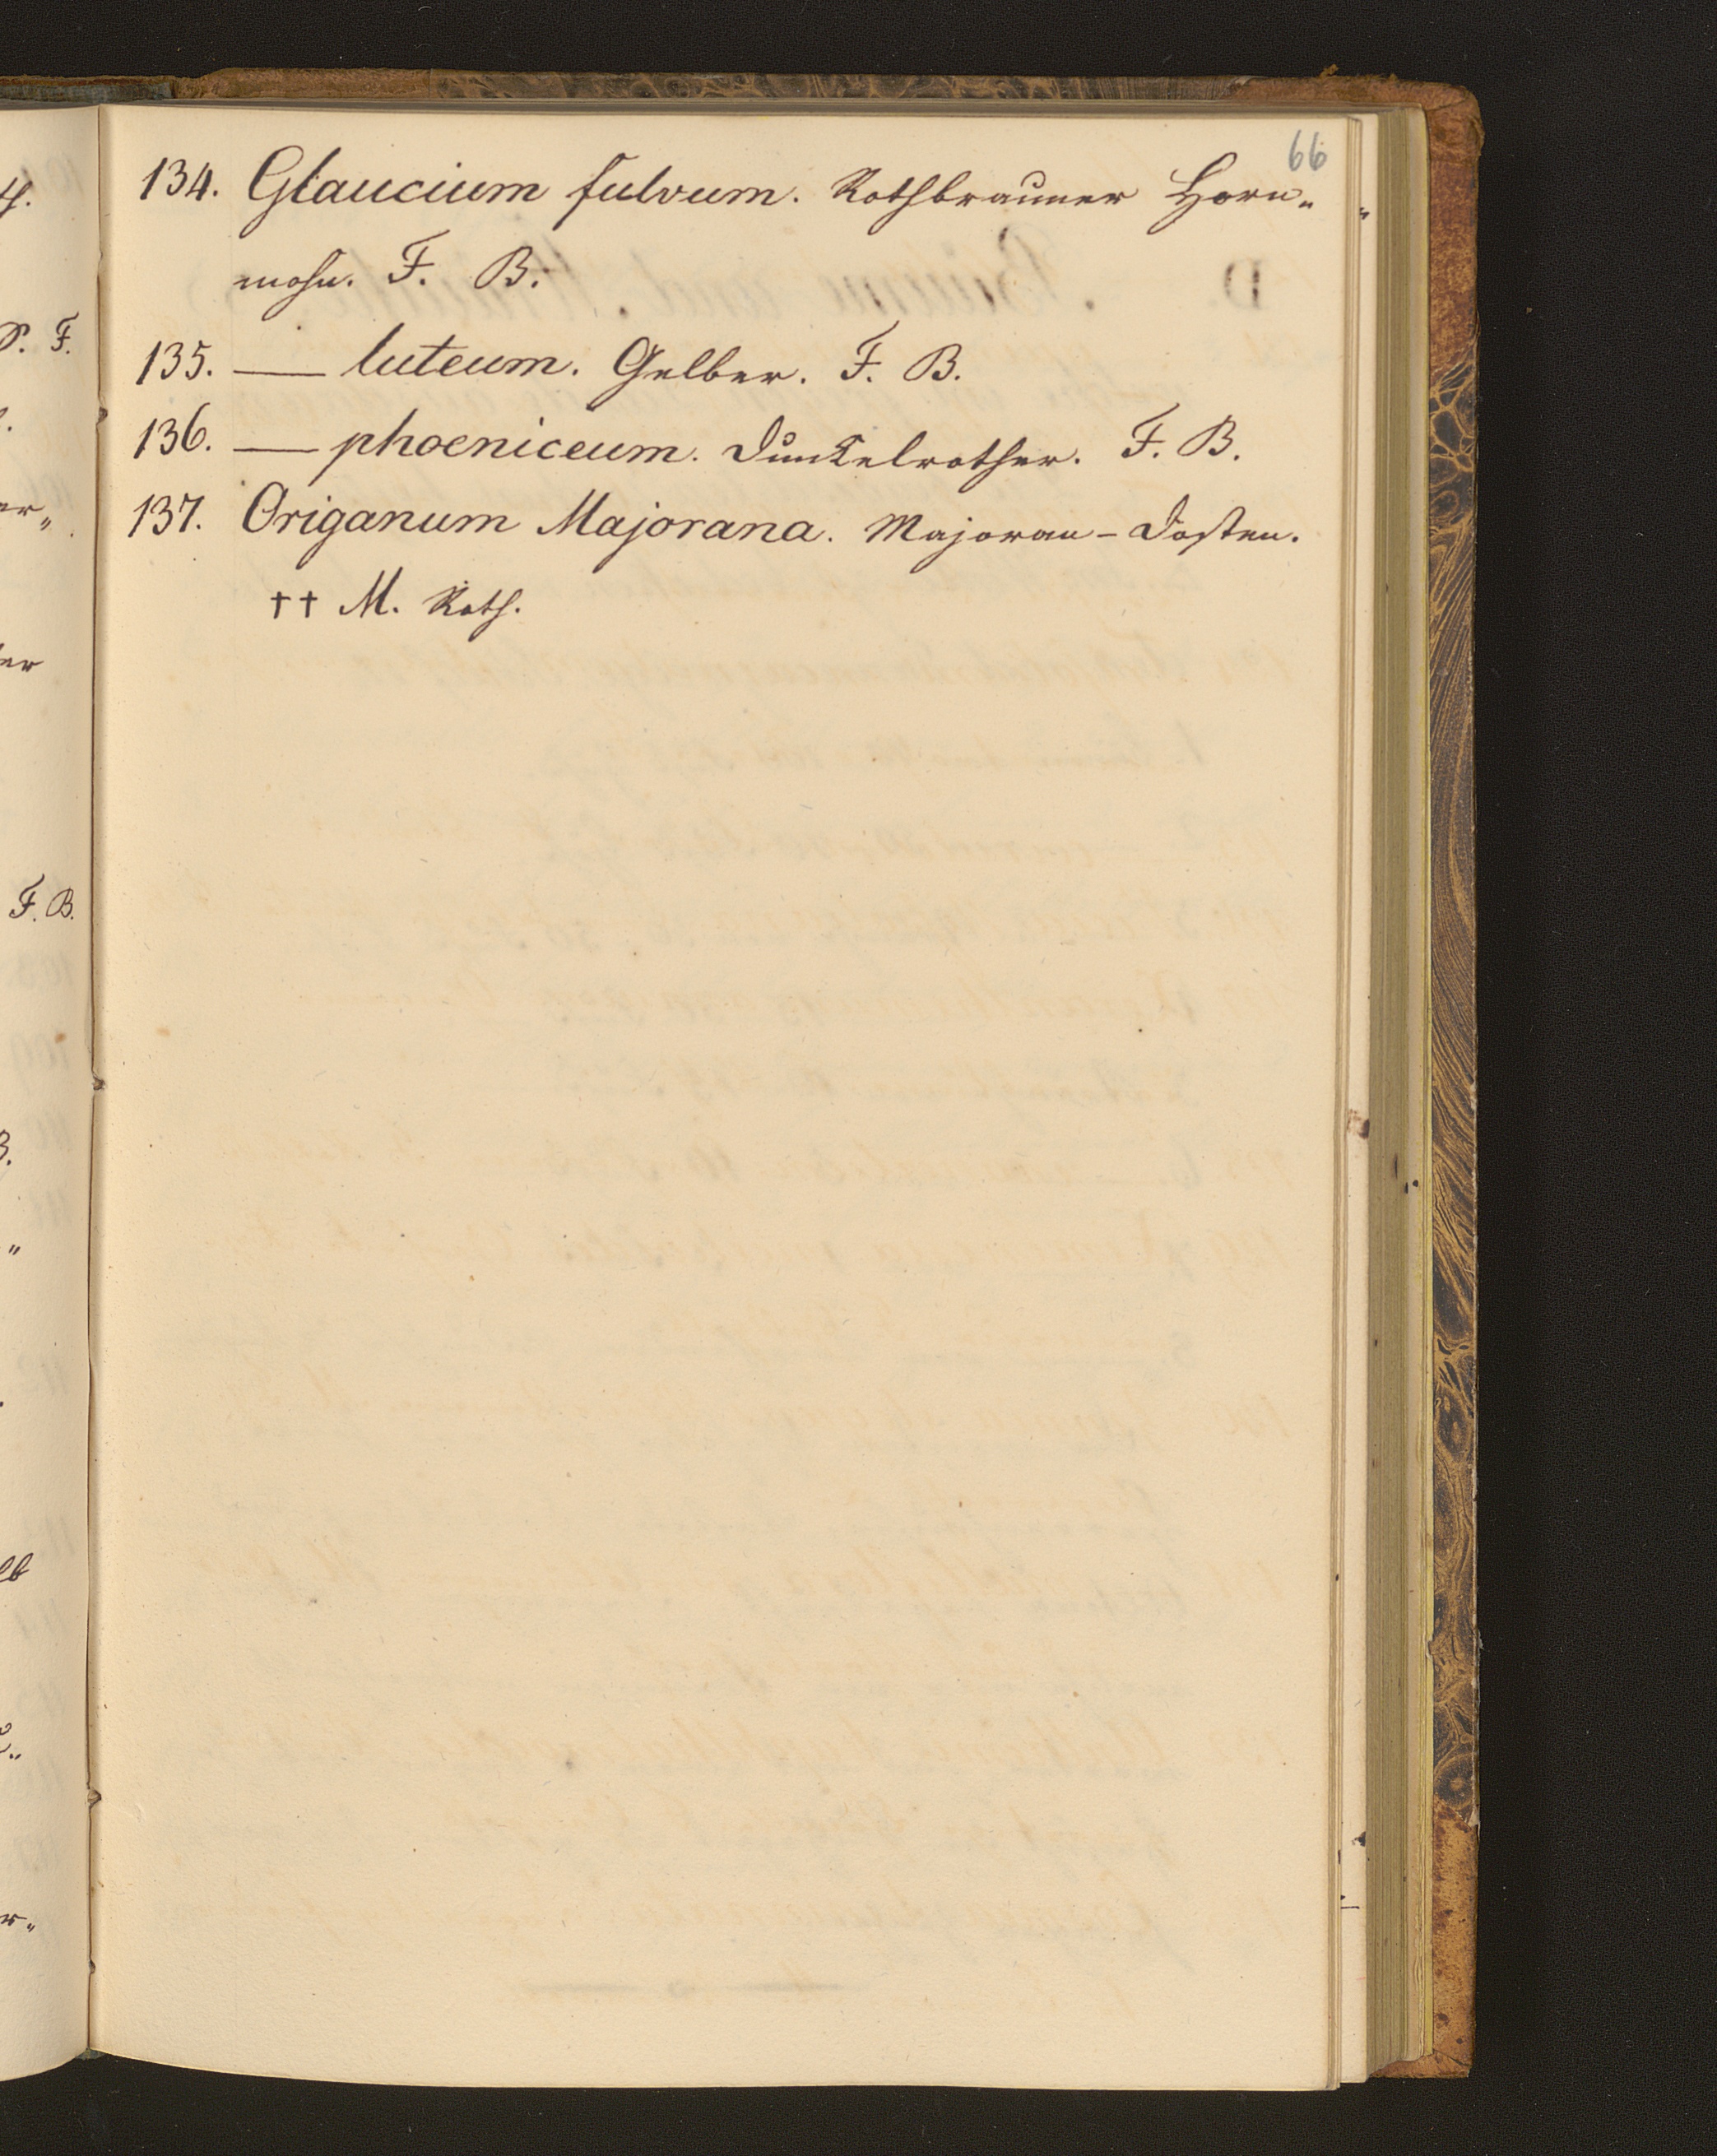 66
134. Glaucium fulvum. Rothbrauner Horn„
mohn. F. B.
135. — luteum. Gelber. F. B.
136. — phoeniceum. Dunkelrother. F. B.
137. Origanum Majorana. Majoran-Dosten.
†† M. Roth.